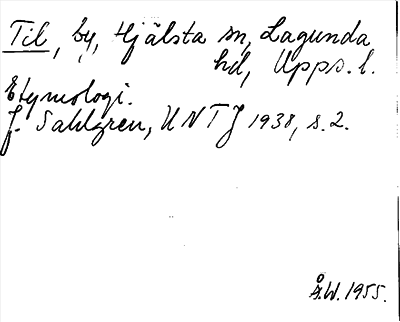 Til, by, Hjälsta sn, Lagunda
hd, Upps. l.
Etymologi.
J. Sahlgren, UNTJ 1938, s. 2.
Å.W. 1955.